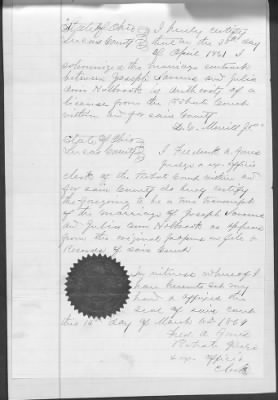 State of Ohio } I hereby certify
Lucas County } that on the 1st day
of April 1861 I
solemnized the marriage contract
between Joseph and Julia
Ann Holbrook by authority of a
license from the Probate Court
within and for said County
D. C. Merrill J.P.
State of Ohio }
Lucas County } I Frederick A. Jones
Judge & ex officio
clerk of the Probate Court within and
for said County do hereby certify
the foregoing to be a true transcript
of the marriage of Joseph
and Julia Ann Holbrook as appears
from the original papers on file &
Records of said Court
In witness whereof I
have hereunto set my
hand & affixed the
seal of said court
this day of March AD 1864
Fred A. Jones
Probate Judge
& ex officio
Clerk